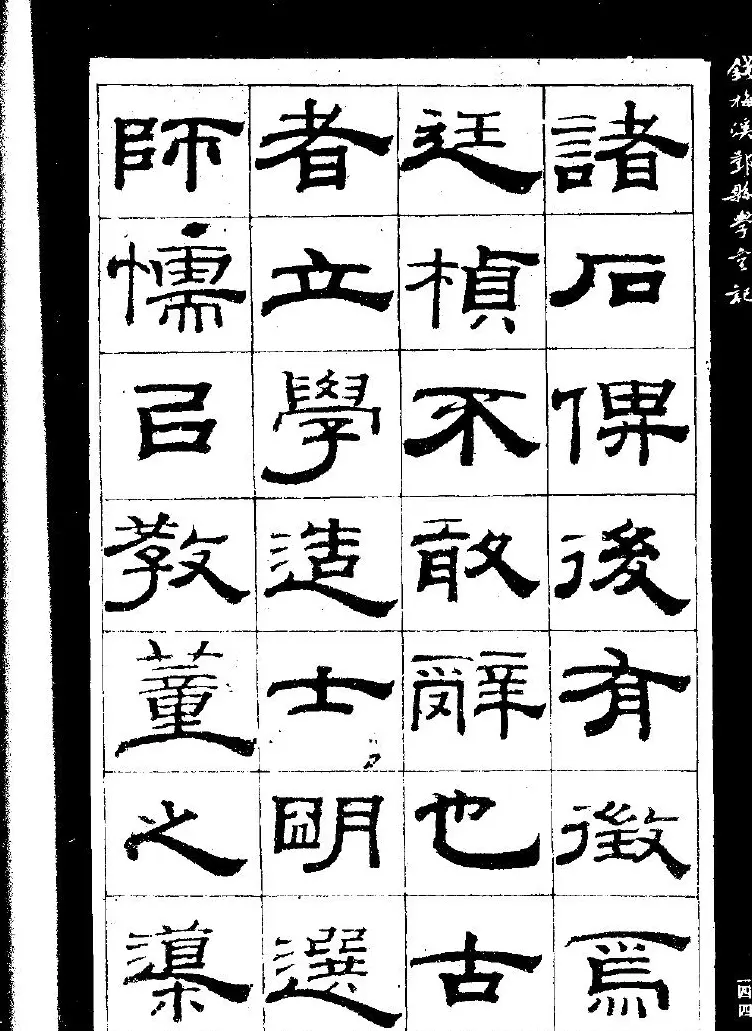 錢梅溪鄞縣學宮記
諸石俾後有徵爲
廷楨不敢辭也古
者立學造士朙選
師懦㠯教董之
一四四